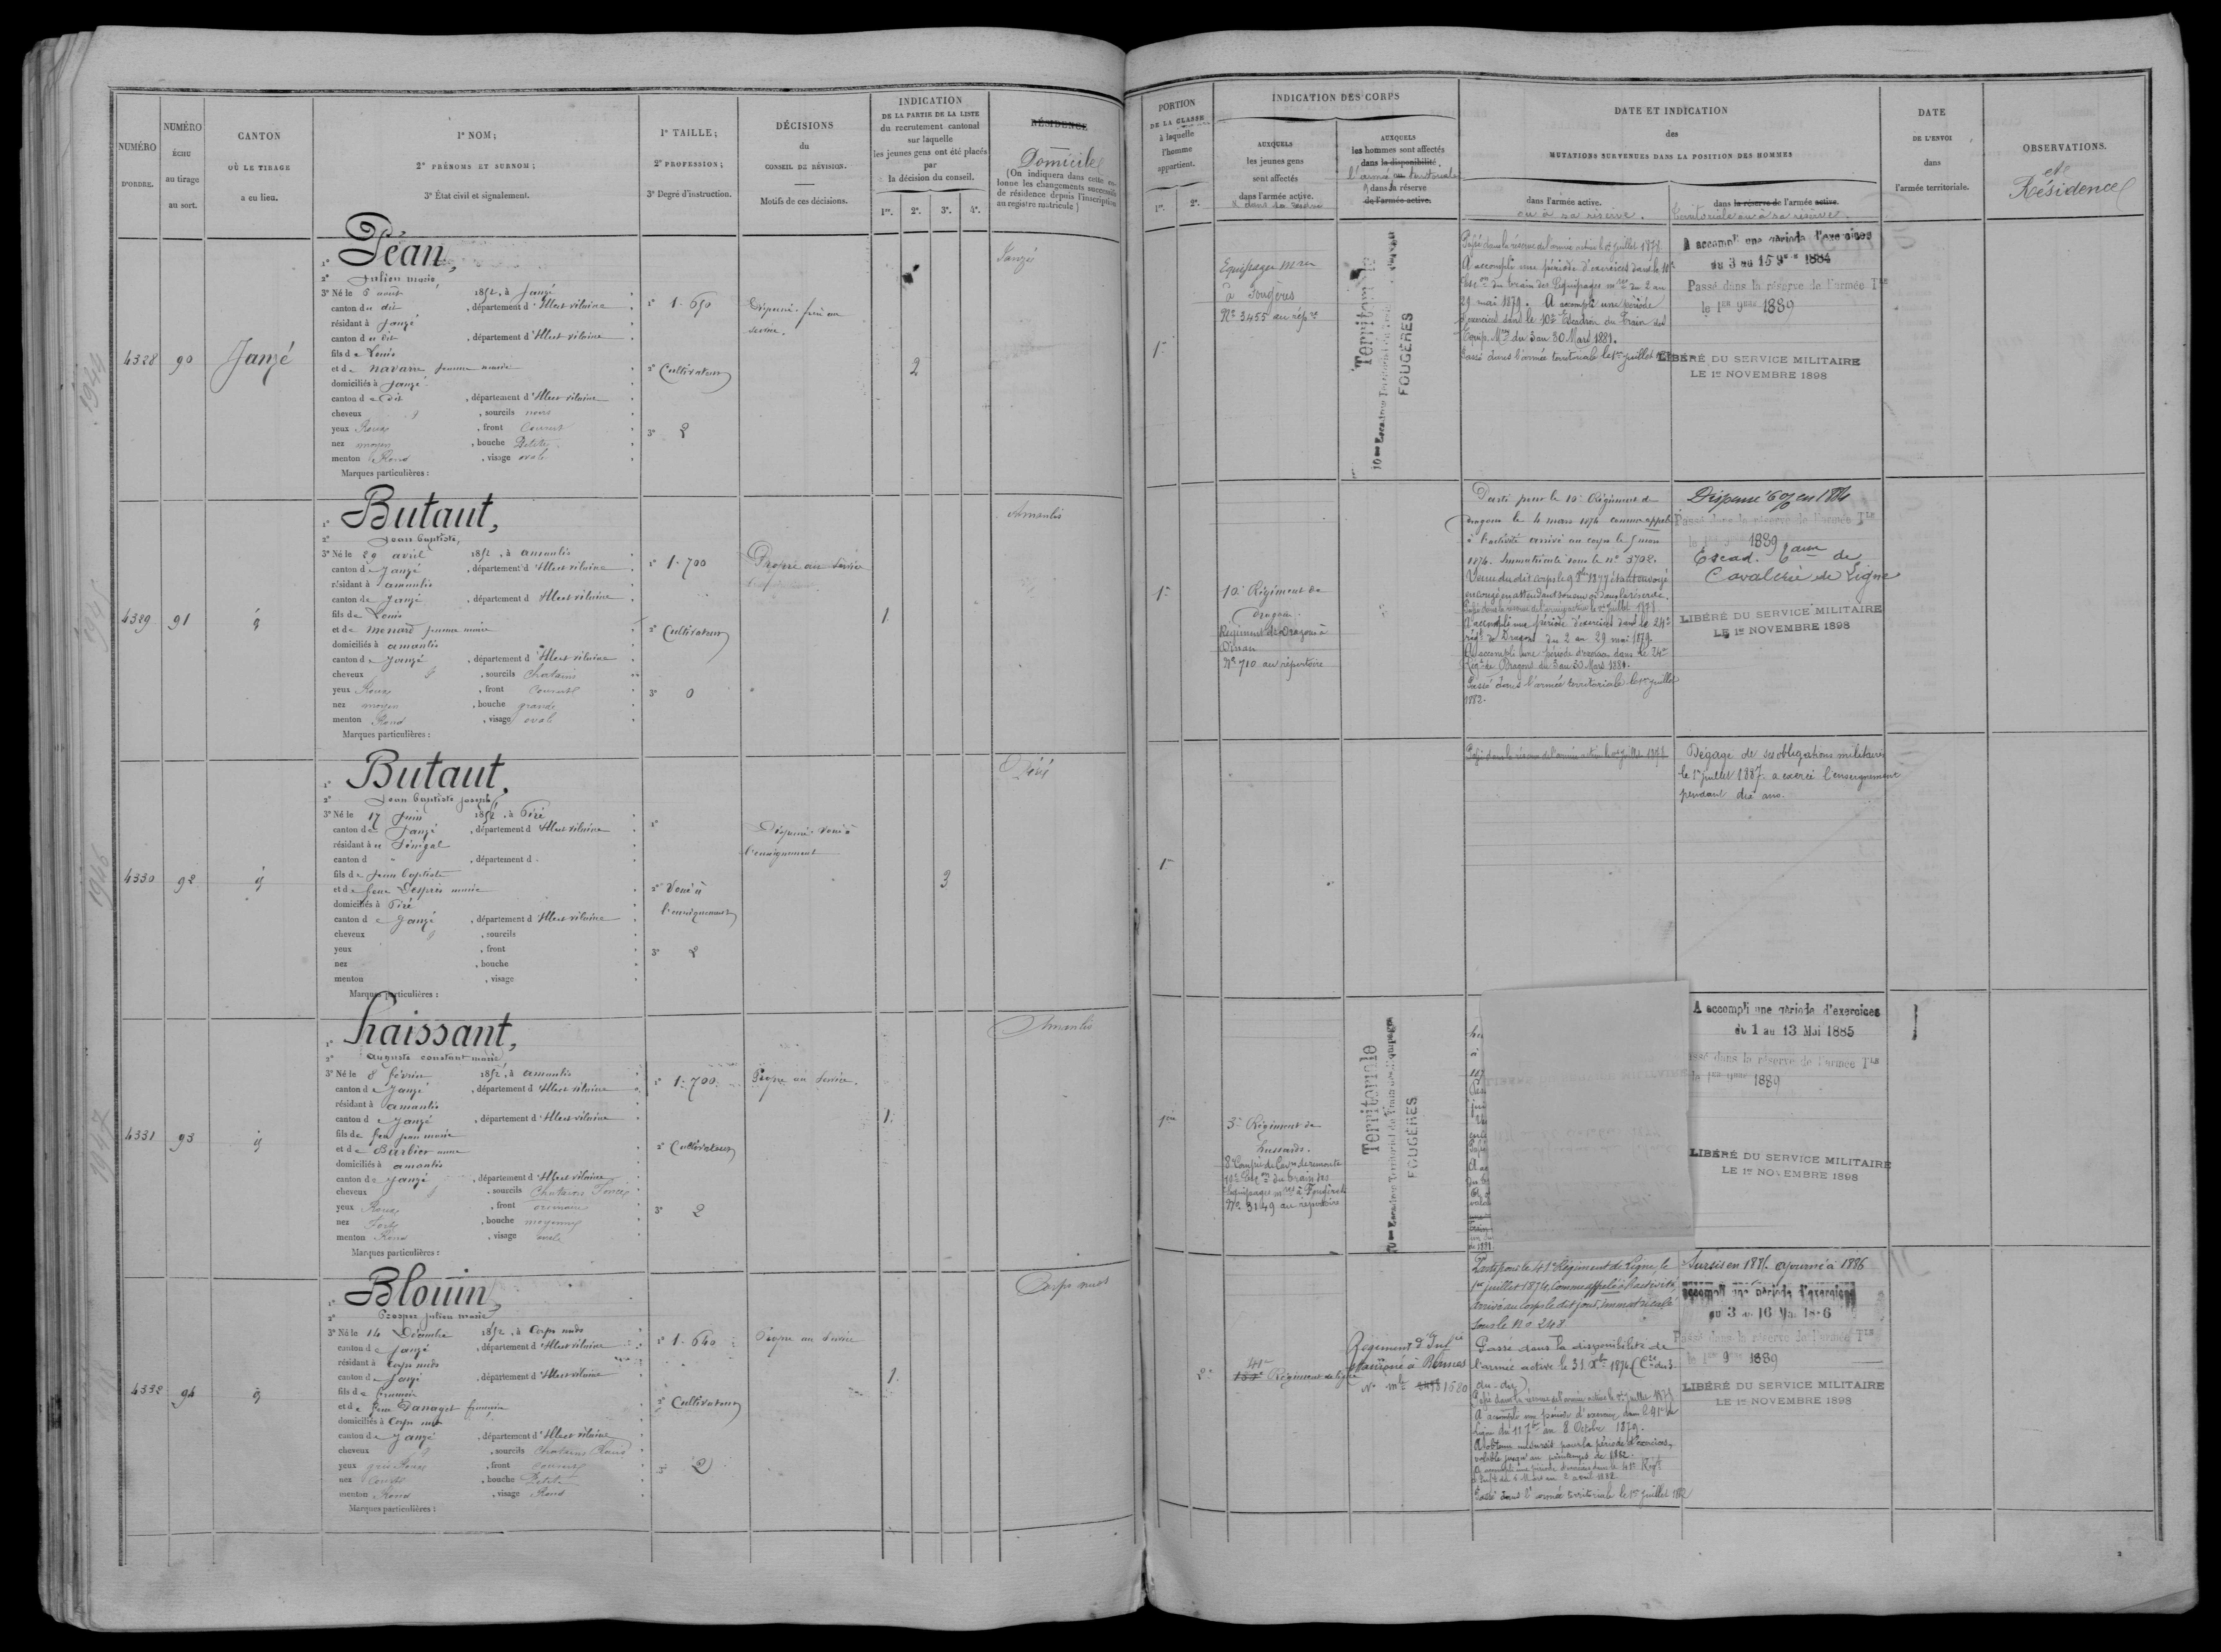 NUMÉRO
D'ORDRE.
NUMÉRO
ÉCHU
au tirage
au sort.
CANTON
OÙ LE TIRAGE
a eu lieu.
1° NOM;
2° PRÉNOMS ET SURNOM;
3° État civil et signalement.
1° TAILLE;
2° PROFESSION;
3° Degré d'instruction.
DÉCISIONS
du
CONSEIL DE RÉVISION.
Motifs de ces décisions.
INDICATION
DE LA PARTIE DE LA LISTE
du recrutement cantonal
sur laquelle
les jeunes gens ont été placés
par
la décision du conseil.
1re. 2e. 3e. 4e.
RÉSIDENCE
Domicile
(On indiquera dans cette co-
lonne les changements successifs
de résidence depuis l'inscription
au registre matricule)
PORTION
DE LA CLASSE
à laquelle
l'homme
appartient.
1re. 2e.
INDICATION DES CORPS
AUXQUELS
les jeunes gens
sont affectés
dans l'armée active.
& dans sa réserve
AUXQUELS
les hommes sont affectés
dans la disponibilité,
l'armée territoriale
& dans sa réserve
de l'armée active.
DATE ET INDICATION
des
MUTATIONS SURVENUES DANS LA POSITION DES HOMMES
dans l'armée active.
ou à sa réserve.
dans la réserve de l'armée active.
Territoriale ou à sa réserve.
DATE
DE L'ENVOI
dans
l'armée territoriale.
OBSERVATIONS.
et
Résidence
4328 90 Janzé
1° Péan,
2° Julien marie,
3° Né le 6 août 1852, à Janzé
canton du dit, département d'Ille et vilaine
résidant à Janzé
canton du dit, département d'Ille et vilaine
fils de Louis
et de navarre jeanne marie
domiciliés à Janzé
canton du dit, département d'Ille et vilaine
cheveux, sourcils noirs
yeux Roux, front Couvert
nez moyen, bouche Petite
menton Rond, visage ovale
Marques particulières:
1° 1.650
2° Cultivateur
3° 2
Dispensé, frère au
service.
2
Janzé
1re
Equipages mres
à Fougères
No 3455 au rép.re
Territoriale
10me Escadron Territorial du Train des Equipages
FOUGÈRES
Passé dans la réserve de l'armée active le 1er juillet 1878
A accompli une période d'exercices dans le 10e
Esc.on du train des Equipages m.res du 2 au
29 mai 1879. A accompli une période
d'exercices dans le 10e Escadron du Train des
Equip. M.res du 3 au 30 Mars 1881.
Passé dans l'armée territoriale le 1er juillet
A accompli une période d'exercices
du 3 au 15 9bre 1884
Passé dans la réserve de l'armée Tle
le 1er 9bre 1889
LIBÉRÉ DU SERVICE MILITAIRE
LE 1er NOVEMBRE 1898
4329 91 id
1° Butaut,
2° Jean baptiste,
3° Né le 29 avril 1852, à amanlis
canton de Janzé, département d'Ille et vilaine
résidant à amanlis
canton de Janzé, département d'Ille et vilaine
fils de Louis
et de menard jeanne marie
domiciliés à amanlis
canton de Janzé, département d'Ille et vilaine
cheveux, sourcils Chatains
yeux Roux, front Couvert
nez moyen, bouche grande
menton Rond, visage ovale
Marques particulières:
1° 1.700
2° Cultivateur
3° 0
Propre au service
1
Amanlis
1re
10e Régiment de
dragons.
Régiment de Dragons à
Dinan
No 710 au répertoire
Parti pour le 10e Régiment de
dragons le 4 mars 1874 comme appelé
à l'activité arrivé au corps le 5 mars
1874. Immatriculé sous le no 3702.
Venu du dit corps le 9 8bre 1877 étant envoyé
en congé en attendant son envoi dans la réserve.
Passé dans la réserve de l'armée active le 1er juillet 1878
A accompli une période d'exercices dans le 24e
régt de Dragons du 2 au 29 mai 1879.
A accompli une période d'exercices dans le 24e
Régt de Dragons du 3 au 30 Mars 1881.
Passé dans l'armée territoriale le 1er juillet
1882.
Dispensé 6 % en 1884
Passé dans la réserve de l'armée Tle
1889
Escad. de
Cavalerie de Ligne
LIBÉRÉ DU SERVICE MILITAIRE
LE 1er NOVEMBRE 1898
4330 92 id
1° Butaut,
2° Jean baptiste joseph,
3° Né le 17 Juin 1852, à Piré
canton de Janzé, département d'Ille et vilaine
résidant au Sénégal
canton d, département d
fils de Jean baptiste
et de feue Desprès marie
domiciliés à Piré
canton de Janzé, département d'Ille et vilaine
cheveux, sourcils
yeux, front
nez, bouche
menton, visage
Marques particulières:
1°
2° Voué à
l'enseignement
3° 2
Dispensé, voué à
l'enseignement
3
Piré
1re
Passé dans la réserve de l'armée active le 1er juillet 1878
Dégagé de ses obligations militaires
le 1er juillet 1887. a exercé l'enseignement
pendant dix ans.
4331 93 id
1° haissant,
2° auguste constant marie,
3° Né le 8 février 1852, à amanlis
canton de Janzé, département d'Ille et vilaine
résidant à amanlis
canton de Janzé, département d'Ille et vilaine
fils de feu jean marie
et de Barbier anne
domiciliés à amanlis
canton de Janzé, département d'Ille et vilaine
cheveux, sourcils Chatains Foncés
yeux Roux, front ordinaire
nez Fort, bouche moyenne
menton Rond, visage ovale
Marques particulières:
1° 1.700
2° Cultivateur
3° 2
Propre au service.
1
Amanlis
1re
3e Régiment de
hussards.
8e Comp.ie de Cav.rs de remonte
10e Esc.on du train des
Equipages m.res à Fougères
No 3149 au répertoire
Territoriale
10me Escadron Territorial du Train des Equipages
FOUGÈRES
A accompli une période d'exercices
du 1 au 13 Mai 1885
Passé dans la réserve de l'armée Tle
le 1er 9bre 1889
LIBÉRÉ DU SERVICE MILITAIRE
LE 1er NOVEMBRE 1898
4332 94 id
1° Blouin,
2° Prosper Julien marie,
3° Né le 14 Décembre 1852, à Corps nuds
canton de Janzé, département d'Ille et vilaine
résidant à Corps nuds
canton de Janzé, département d'Ille et vilaine
fils de françois
et de feue Danaget françoise
domiciliés à Corps nuds
canton de Janzé, département d'Ille et vilaine
cheveux, sourcils Chatains
yeux gris Roux, front couvert
nez Court, bouche Petite
menton Rond, visage Rond
Marques particulières:
1° 1.640
2° Cultivateur
3° 2
Propre au service
1
Corps nuds
2e
41e
Régiment de ligne
Régiment d'Inf.ie
stationné à Rennes
No m.le 1620
Parti pour le 41e Régiment de Ligne, le
1er juillet 1874, Comme appelé à l'activité,
arrivé au corps le dit jour, immatriculé
sous le No 248
Passé dans la disponibilité de
l'armée active le 31 Xbre 1874
Passé dans la réserve de l'armée active le 1er juillet 1878
A accompli une période d'exercices dans le 41e de
Ligne du 11 7bre au 8 Octobre 1879.
A obtenu un sursis pour la période d'exercices,
valable jusqu'au printemps de 1882.
A accompli une période d'exercices dans le 41e Régt
d'Inf.ie du 6 Mars au 2 avril 1882
Passé dans l'armée territoriale le 1er juillet 1882
Sursis en 1885. ajourné à 1886
A accompli une période d'exercices
du 3 au 16 Mai 1886
Passé dans la réserve de l'armée Tle
le 1er 9bre 1889
LIBÉRÉ DU SERVICE MILITAIRE
LE 1er NOVEMBRE 1898